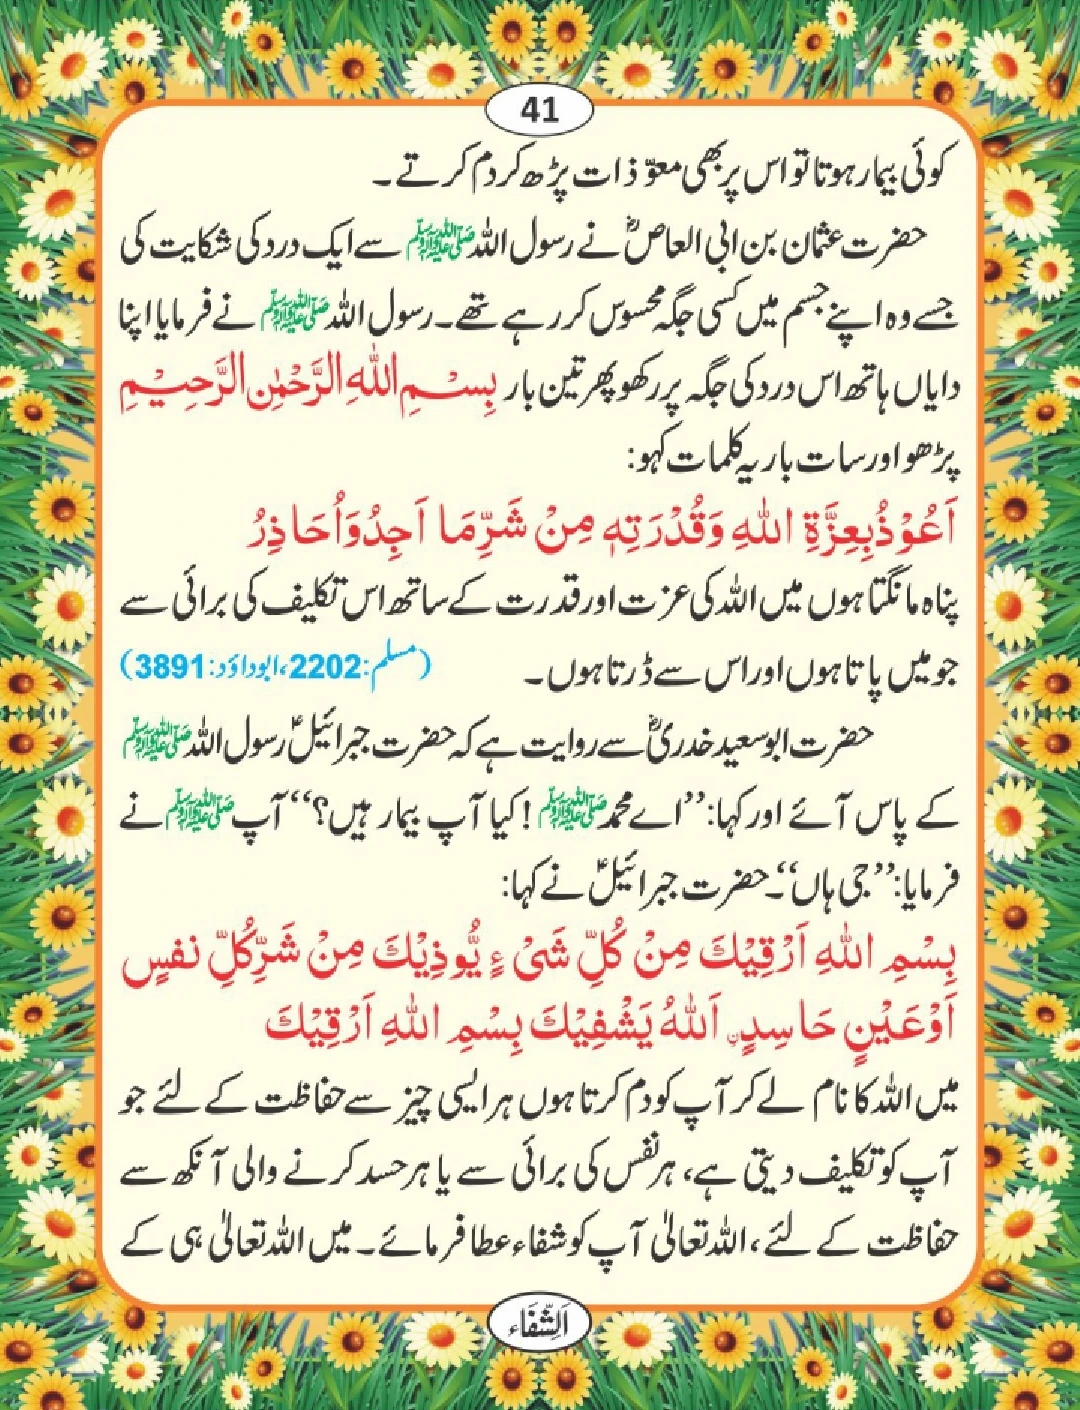 41
کوئی بیمار ہوتا تو اس پر بھی معوّذات پڑھ کر دم کرتے۔
حضرت عثمان بن ابی العاصؓ نے رسول اللہ ﷺ سے ایک درد کی شکایت کی
جسے وہ اپنے جسم میں کسی جگہ محسوس کر رہے تھے۔ رسول اللہ ﷺ نے فرمایا اپنا
دایاں ہاتھ اس درد کی جگہ پر رکھو پھر تین بار بِسْمِ اللهِ الرَّحْمٰنِ الرَّحِيْمِ
پڑھو اور سات بار یہ کلمات کہو:
اَعُوْذُ بِعِزَّةِ اللهِ وَقُدْرَتِهٖ مِنْ شَرِّ مَا اَجِدُ وَاُحَاذِرُ
پناہ مانگتا ہوں میں اللہ کی عزت اور قدرت کے ساتھ اس تکلیف کی برائی سے
جو میں پاتا ہوں اور اس سے ڈرتا ہوں۔ (مسلم: 2202، ابوداؤد: 3891)
حضرت ابو سعید خدریؓ سے روایت ہے کہ حضرت جبرائیلؑ رسول اللہ ﷺ
کے پاس آئے اور کہا: ’’اے محمد ﷺ! کیا آپ بیمار ہیں؟‘‘ آپ ﷺ نے
فرمایا: ’’جی ہاں‘‘۔ حضرت جبرائیلؑ نے کہا:
بِسْمِ اللهِ اَرْقِيْكَ مِنْ كُلِّ شَىْءٍ يُّوذِيْكَ مِنْ شَرِّ كُلِّ نفسٍ
اَوْ عَيْنٍ حَاسِدٍنِ اَللهُ يَشْفِيْكَ بِسْمِ اللهِ اَرْقِيْكَ
میں اللہ کا نام لے کر آپ کو دم کرتا ہوں ہر ایسی چیز سے حفاظت کے لئے جو
آپ کو تکلیف دیتی ہے، ہر نفس کی برائی سے یا ہر حسد کرنے والی آنکھ سے
حفاظت کے لئے، اللہ تعالیٰ آپ کو شفاء عطا فرمائے۔ میں اللہ تعالیٰ ہی کے
اَلشِّفَاء